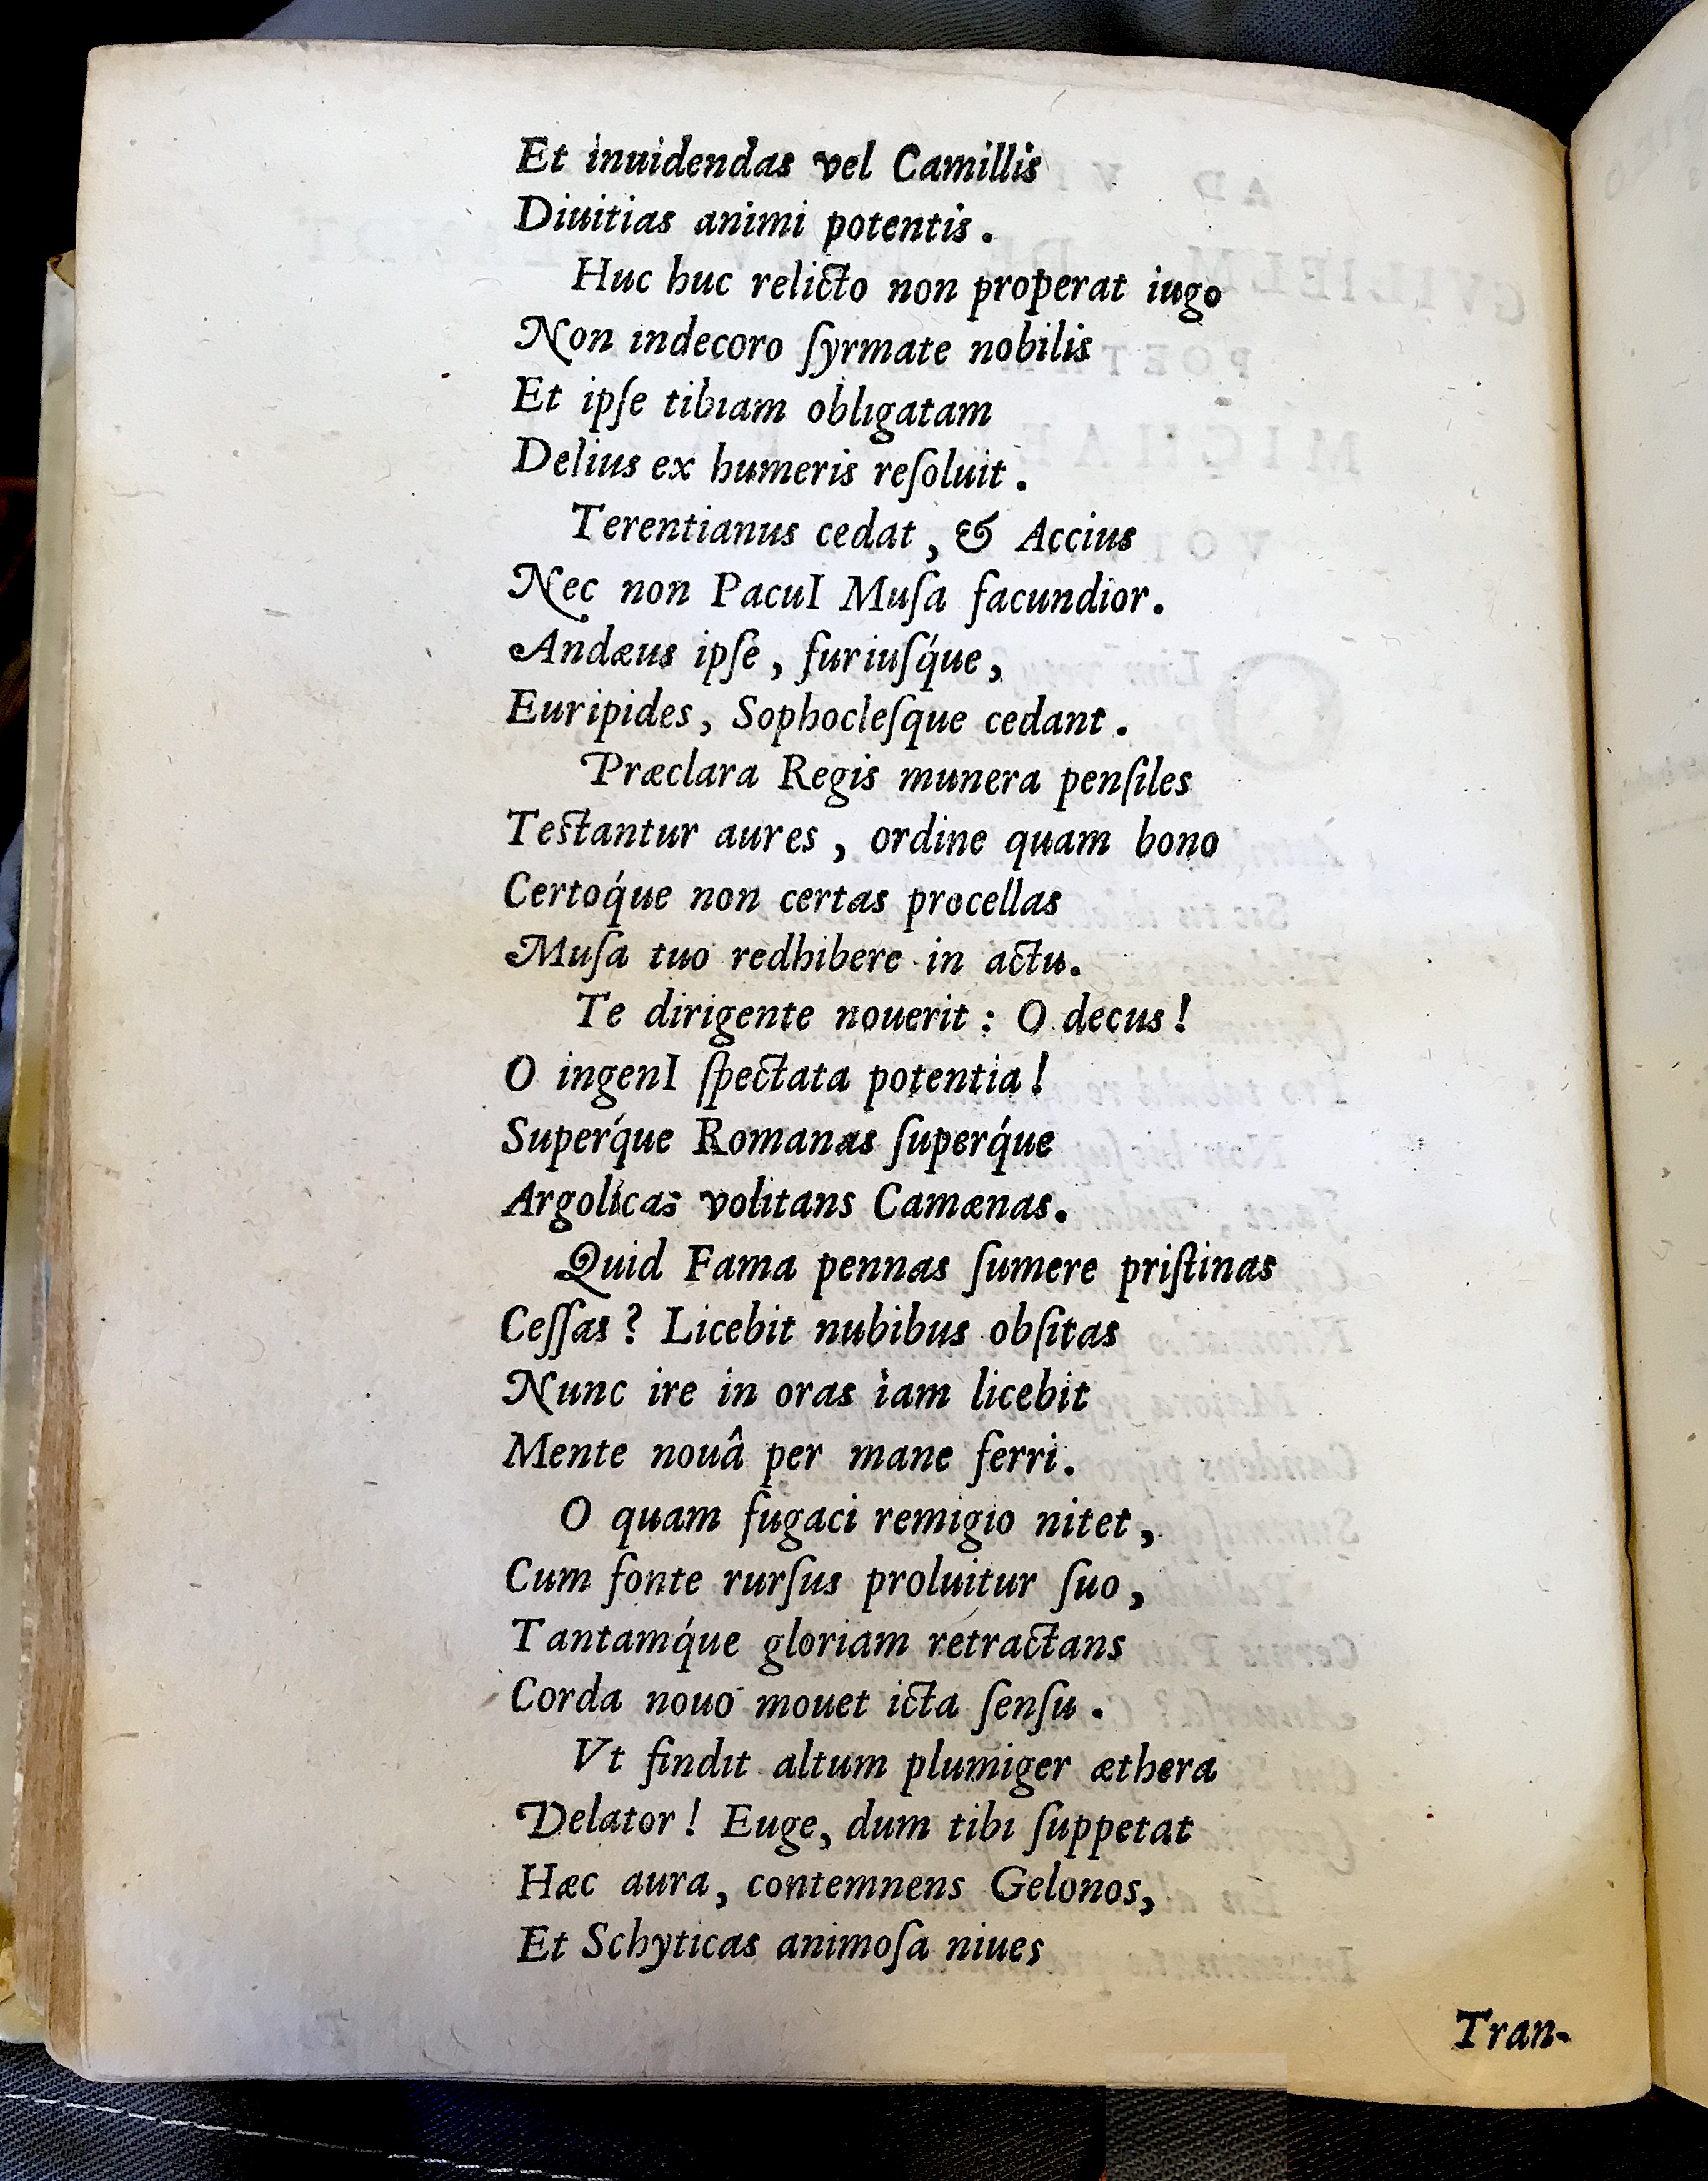 Et inuidendas vel Camillis
Diuitias animi potentis.
Huc huc relicto non properat iugo
Non indecoro ſyrmate nobilis
Et ipſe tibiam obligatam
Delius ex humeris reſoluit.
Terentianus cedat, & Accius
Nec non PacuI Muſa facundior.
Andæus ipſe, furiuſq́ue,
Euripides, Sophocleſque cedant.
Præclara Regis munera penſiles
Testantur aures, ordine quam bono
Certoq́ue non certas procellas
Muſa tuo redhibere in actu.
Te dirigente nouerit: O decus!
O ingenI ſpectata potentia!
Superq́ue Romanas ſuperq́ue
Argolicas volitans Camænas.
Quid Fama pennas ſumere priſtinas
Ceſſas? Licebit nubibus obſitas
Nunc ire in oras iam licebit
Mente nouâ per mane ferri.
O quam fugaci remigio nitet,
Cum fonte rurſus proluitur ſuo,
Tantamq́ue gloriam retractans
Corda nouo mouet icta ſenſu.
Vt findit altum plumiger æthera
Delator! Euge, dum tibi ſuppetat
Hæc aura, contemnens Gelonos,
Et Schyticas animoſa niues
Tran-